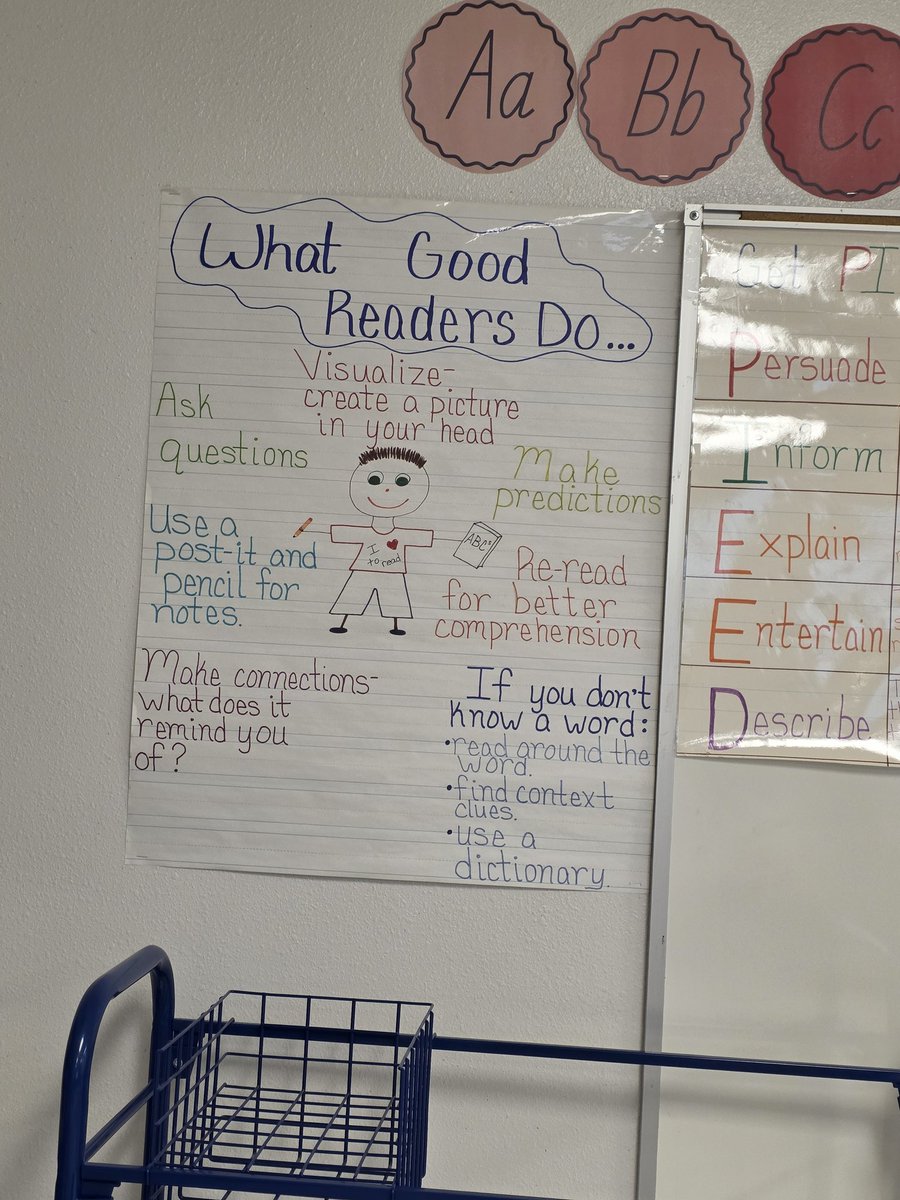 Aa
Bb
Cc
What Good
Readers Do...
Visualize-
create a picture
in your head
Ask
questions
Make
predictions
Use a
post-it and
pencil for
notes.
I ♥
to read
ABC's
Re-read
for better
comprehension
Make connections-
what does it
remind you
of?
If you don't
know a word:
•read around the
word.
•find context
clues.
•use a
dictionary.
Get PI
Persuade
Inform
Explain
Entertain
Describe